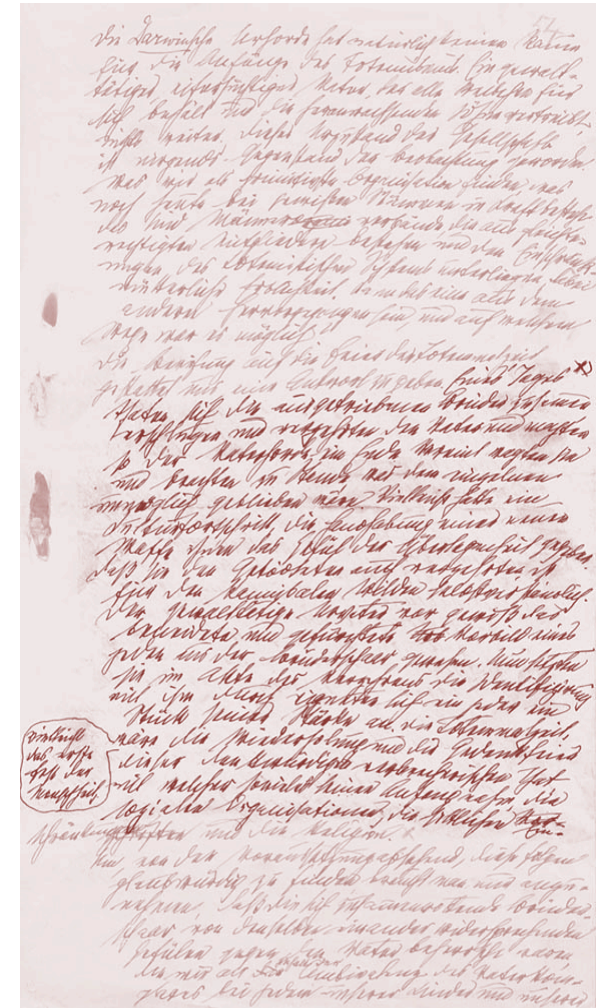 Die Darwinsche Urhorde hat natürlich keinen Raum
für die Anfänge des Totemismus. Ein gewalt-
tätiger, eifersüchtiger Vater, der alle Weibchen für
sich behält und die heranwachsenden Söhne vertreibt,
nichts weiter. Dieser Urzustand der Gesellschaft
ist nirgends Gegenstand der Beobachtung geworden.
Was wir als primitivste Organisation finden, was
noch heute bei gewissen Stämmen in Kraft besteht,
das sind Männerverbände, die aus gleichbe-
rechtigten Mitgliedern bestehen und den Einschränk-
ungen des totemistischen Systems unterliegen, dabei
mütterliche Erblichkeit. Kann das eine aus dem
anderen hervorgegangen sein, und auf welchem
Wege war es möglich?
Die Berufung auf die Feier der Totemmahlzeit
gestattet uns eine Antwort zu geben. Eines Tages x)
taten sich die ausgetriebenen Brüder zusammen
erschlugen und verzehrten den Vater und machten
so der Vaterhorde ein Ende. Vereint wagten sie
und brachten zu Stande was dem einzelnen
unmöglich geblieben wäre. Vielleicht hatte ein
Kulturfortschritt, die Handhabung einer neuen
Waffe ihnen das Gefühl der Überlegenheit gegeben.
Daß sie den Getödteten auch verzehrten ist
für den kannibalen Wilden selbstverständlich.
Der gewalttätige Urvater war gewiß das
beneidete und gefürchtete Vorbild eines
jeden aus der Brüderschaar gewesen. Nun setzten
sie im Akte des Verzehrens die Identifizirung
mit ihm durch, eigneten sich ein jeder ein
Stück seiner Stärke an. Die Totemmahlzeit,
vielleicht
das erste
Fest der
Menschheit,
wäre die Wiederholung und die Gedenkfeier
dieser denkwürdigen verbrecherischen That
mit welcher so vieles seinen Anfang nahm, die
sozialen Organisationen, die sittlichen Ein-
schränkungen und die Religion.
Um von der Voraussetzung absehend, diese Folgen
glaubwürdig zu finden braucht man nur anzu-
nehmen, daß die sich zusammenrottende Brüder-
schaar von denselben einander widersprechenden
Gefühlen gegen den Vater beherrscht waren
die wir als Ambivalenz des Vaterkom-
plexes bei jedem unserer Kinder und unserer